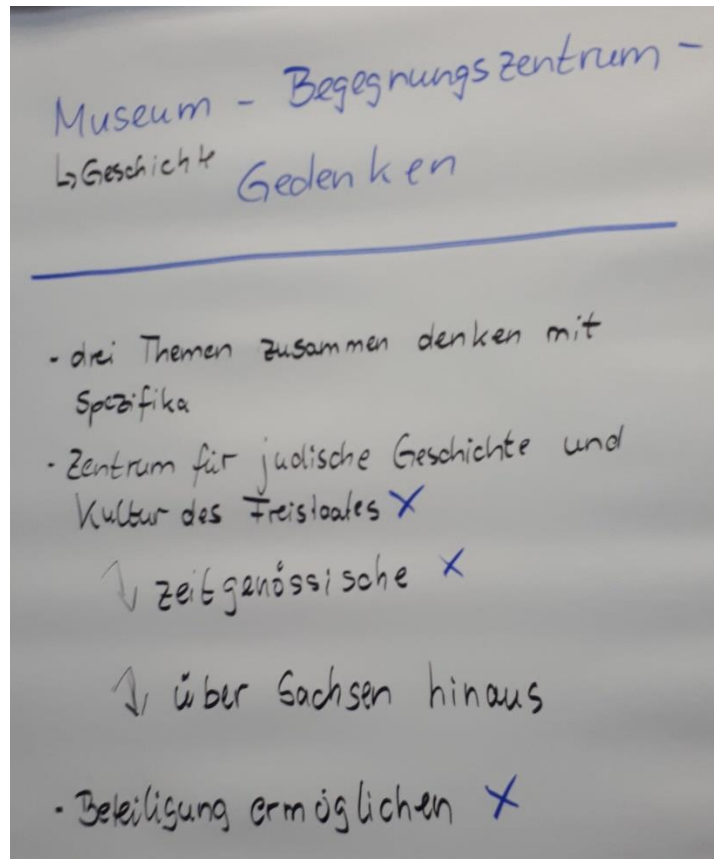 Museum - Begegnungszentrum -
↳ Geschichte Gedenken
- drei Themen zusammen denken mit
Spezifika
- Zentrum für jüdische Geschichte und
Kultur des Freistaates X
↓ zeitgenössische X
↓ über Sachsen hinaus
- Beteiligung ermöglichen X